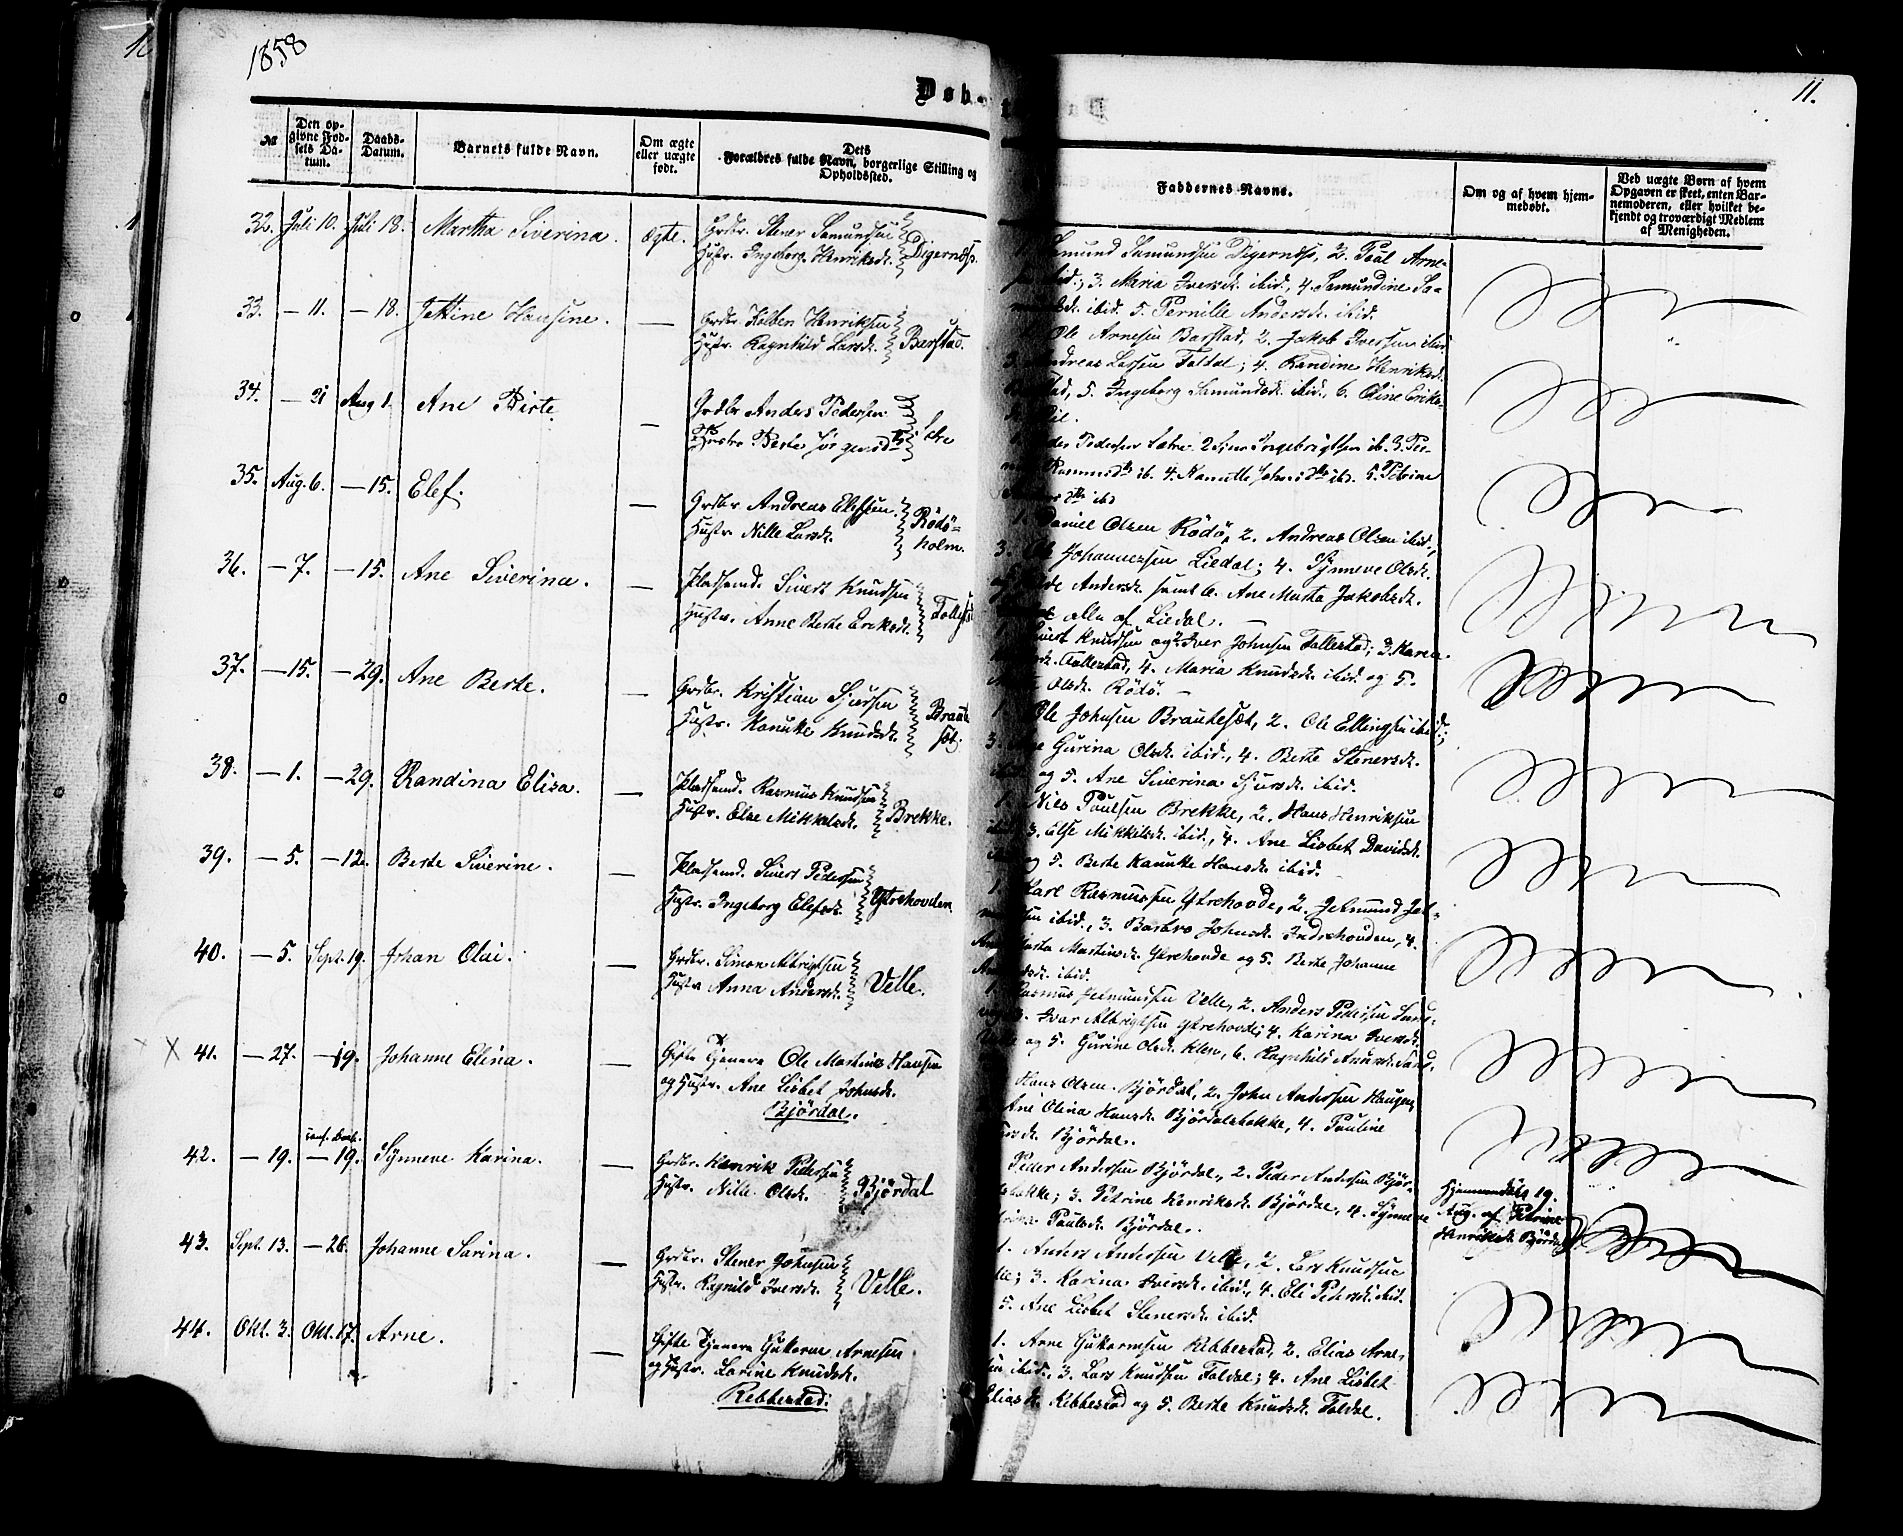 1858
11.
Døb-
№
Den opgivne Fødsels Datum.
Daabs-Datum.
Barnets fulde Navn.
Om ægte eller uægte født.
Dets Forældres fulde Navn, borgerlige Stilling og Opholdssted.
Faddernes Navne.
Om og af hvem hjemmedøbt.
Ved uægte Børn af hvem Opgaven er skeet, enten Barnemoderen, eller hvilket bekjendt og troværdigt Medlem af Menigheden.
32. Juli 10. Juli 18. Martha Siverina. ægte. Grdbr. Stener Samundsen
Hustr. Ingeborg Henriksdr. Digernæs.
Samund Samundsen Digernæs, 2. Paul Arne-
ibid; 3. Maria Iversdr. ibid., 4. Samundine Sa-
ibid. 5. Pernille Andersdr. ibid.
33. — 11. — 18. Jettine Hansine. — Grdbr. Kolben Henriksen
Hustr. Ragnhild Larsdr. Barstad.
Ole Arnesen Barstad, 2. Jakob Iversen ibid.
3. Andreas Larsen Foldal; 4. Randine Henriksdr.
5. Ingeborg Samundsdr. ibid., 6. Oline Eriks-
34. — 21 Aug 1. Ane Birte. — Grdbr Anders Pedersen
Hustr. Berte Jørgensdtr Sætre
Pedersen Sætre 2 Ingebrigtsen ib. 3.
ib. 4. ibd. 5. Petrine
ibd
35. Aug. 6. — 15. Elef. — Grdbr Andreas Elefsen
Hustr. Nille Larsdr. Rödöholm.
1. Daniel Olsen Rödö, 2. Andreas Olsen ibid.,
3. Ole Johannessen Liedal; 4. Synneve Olsdr.
Andersdr. samt 6. Ane Marta Jakobsdr.
alle af Liedal. —
36. — 7. — 15. Ane Siverina. — Pladsmd. Sivert Knudsen
Hustr. Anne Berte Eriksdr.
Knudsen og 2. Iver Johnsen Follestad, 3. Karen
Follestad, 4. Maria Knudsdr. ibid. og 5.
Olsdr. Rödö. —
37. — 15. — 29. Ane Berte. — Grdbr. Kristian Sjursen
Hustr. Kanutte Knudsdr. Brautesæt.
1. Ole Johnsen Brautesæt, 2. Ole Ellingsen ibid;
3. Gurina Olsdr. ibid., 4. Berte Stenersdr.
og 5. Ane Siverina Sjursdr. ibid.
38. — 1. — 29. Randina Elisa. — Pladsmd. Rasmus Knudsen
Hustr. Else Mikkelsdr. Brekke.
1. Nils Paulsen Brekke, 2. Hans Henriksen
3. Else Mikkelsdr. ibid., 4. Ane Lisbet Davidsdr.
og 5. Berte Kanutte Hansdr. ibid.
39. — 5. — 12. Berte Siverine. — Pladsmd. Sivert Pedersen
Hustr. Ingeborg Elefsdr. Ytrehovden
1. Karl Rasmussen Ytrehovde, 2. Jetmund Jet-
ibid., 3. Barbro Johnsdr. Indrehovden, 4.
Marta Martinsdr. Ytrehovde og 5. Berte Johanne
ibid.
40. — 5. Sept. 19. Johan Olai. — Grdbr. Simon Albrigtsen
Hustr Anna Andersdr. Velle.
Rasmus Jetmundsen Velle, 2. Anders Pedersen
3. Ivar Albrigtsen Ytrehovde, 4. Karina Iversdr.
og 5. Gurine Olsdr. Klen, 6. Ragnhild
X 41. — 27. — 19. Johanne Elina. — Gifte Tjenere Ole Martinus Hansen
og Hustr. Ane Lisbet Johnsdr.
Björdal.
Hans Olsen Björdal, 2. John Andersen Haugen,
Ane Olina Hansdr. Björdalsbakke, 4. Pauline
Björdal.
42. — 19. — 19. Synneve Karina. — Grdbr. Henrik Pedersen
Hustr. Nille Olsdr. Björdal
Peder Andersen Björdal, 2. Peder Andersen Björ-
bakke; 3. Petrine Henriksdr. Björdal, 4. Synneve
Paulsdr. Björdal.
Hjemmedöbt 19.
Aug. af Petrine
Henriksdr. Björdal
43. Sept. 13. — 26. Johanne Sarina. — Grdbr. Stener Johnsen
Hustr. Ragnild Iversdr. Velle.
1. Anders Andersen Velle, 2. Lars Knudsen
3. Karina Iversdr. ibid., 4. Eli Pedersdr. ibid.
5. Ane Lisbet Stenersdr. ibid.
44. Okt. 3. Okt. 17. Arne. — Gifte Tjenere Guttorm Arnesen
og Hustr. Larine Knudsdr.
Ribbestad.
1. Arne Guttormsen Ribbestad, 2. Elias Arne-
ibid., 3. Lars Knudsen Foldal; 4. Ane Lisbet
Eliasdr. Ribbestad og 5. Berte Knudsdr. Foldal.